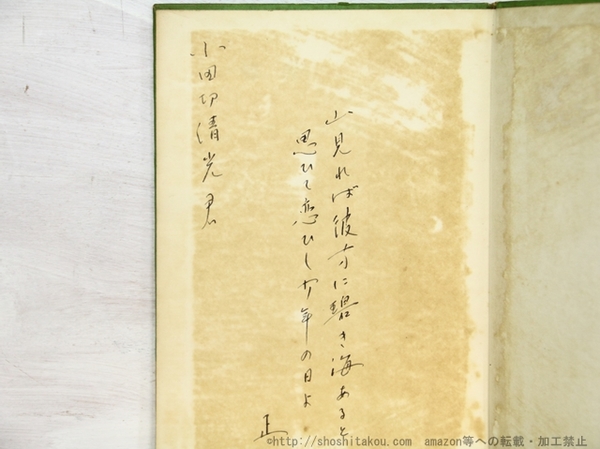 山見れば彼方に碧き海あると
思ひて恋ひし少年の日よ
正
小田切清光君
©http://shoshitakou.com amazon等への転載・加工禁止